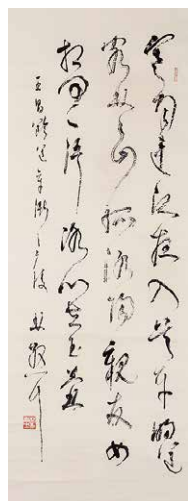 寒雨連江夜入吳平明送
客楚山孤洛陽親友如
相問一片冰心在玉壺
王昌齡送辛漸